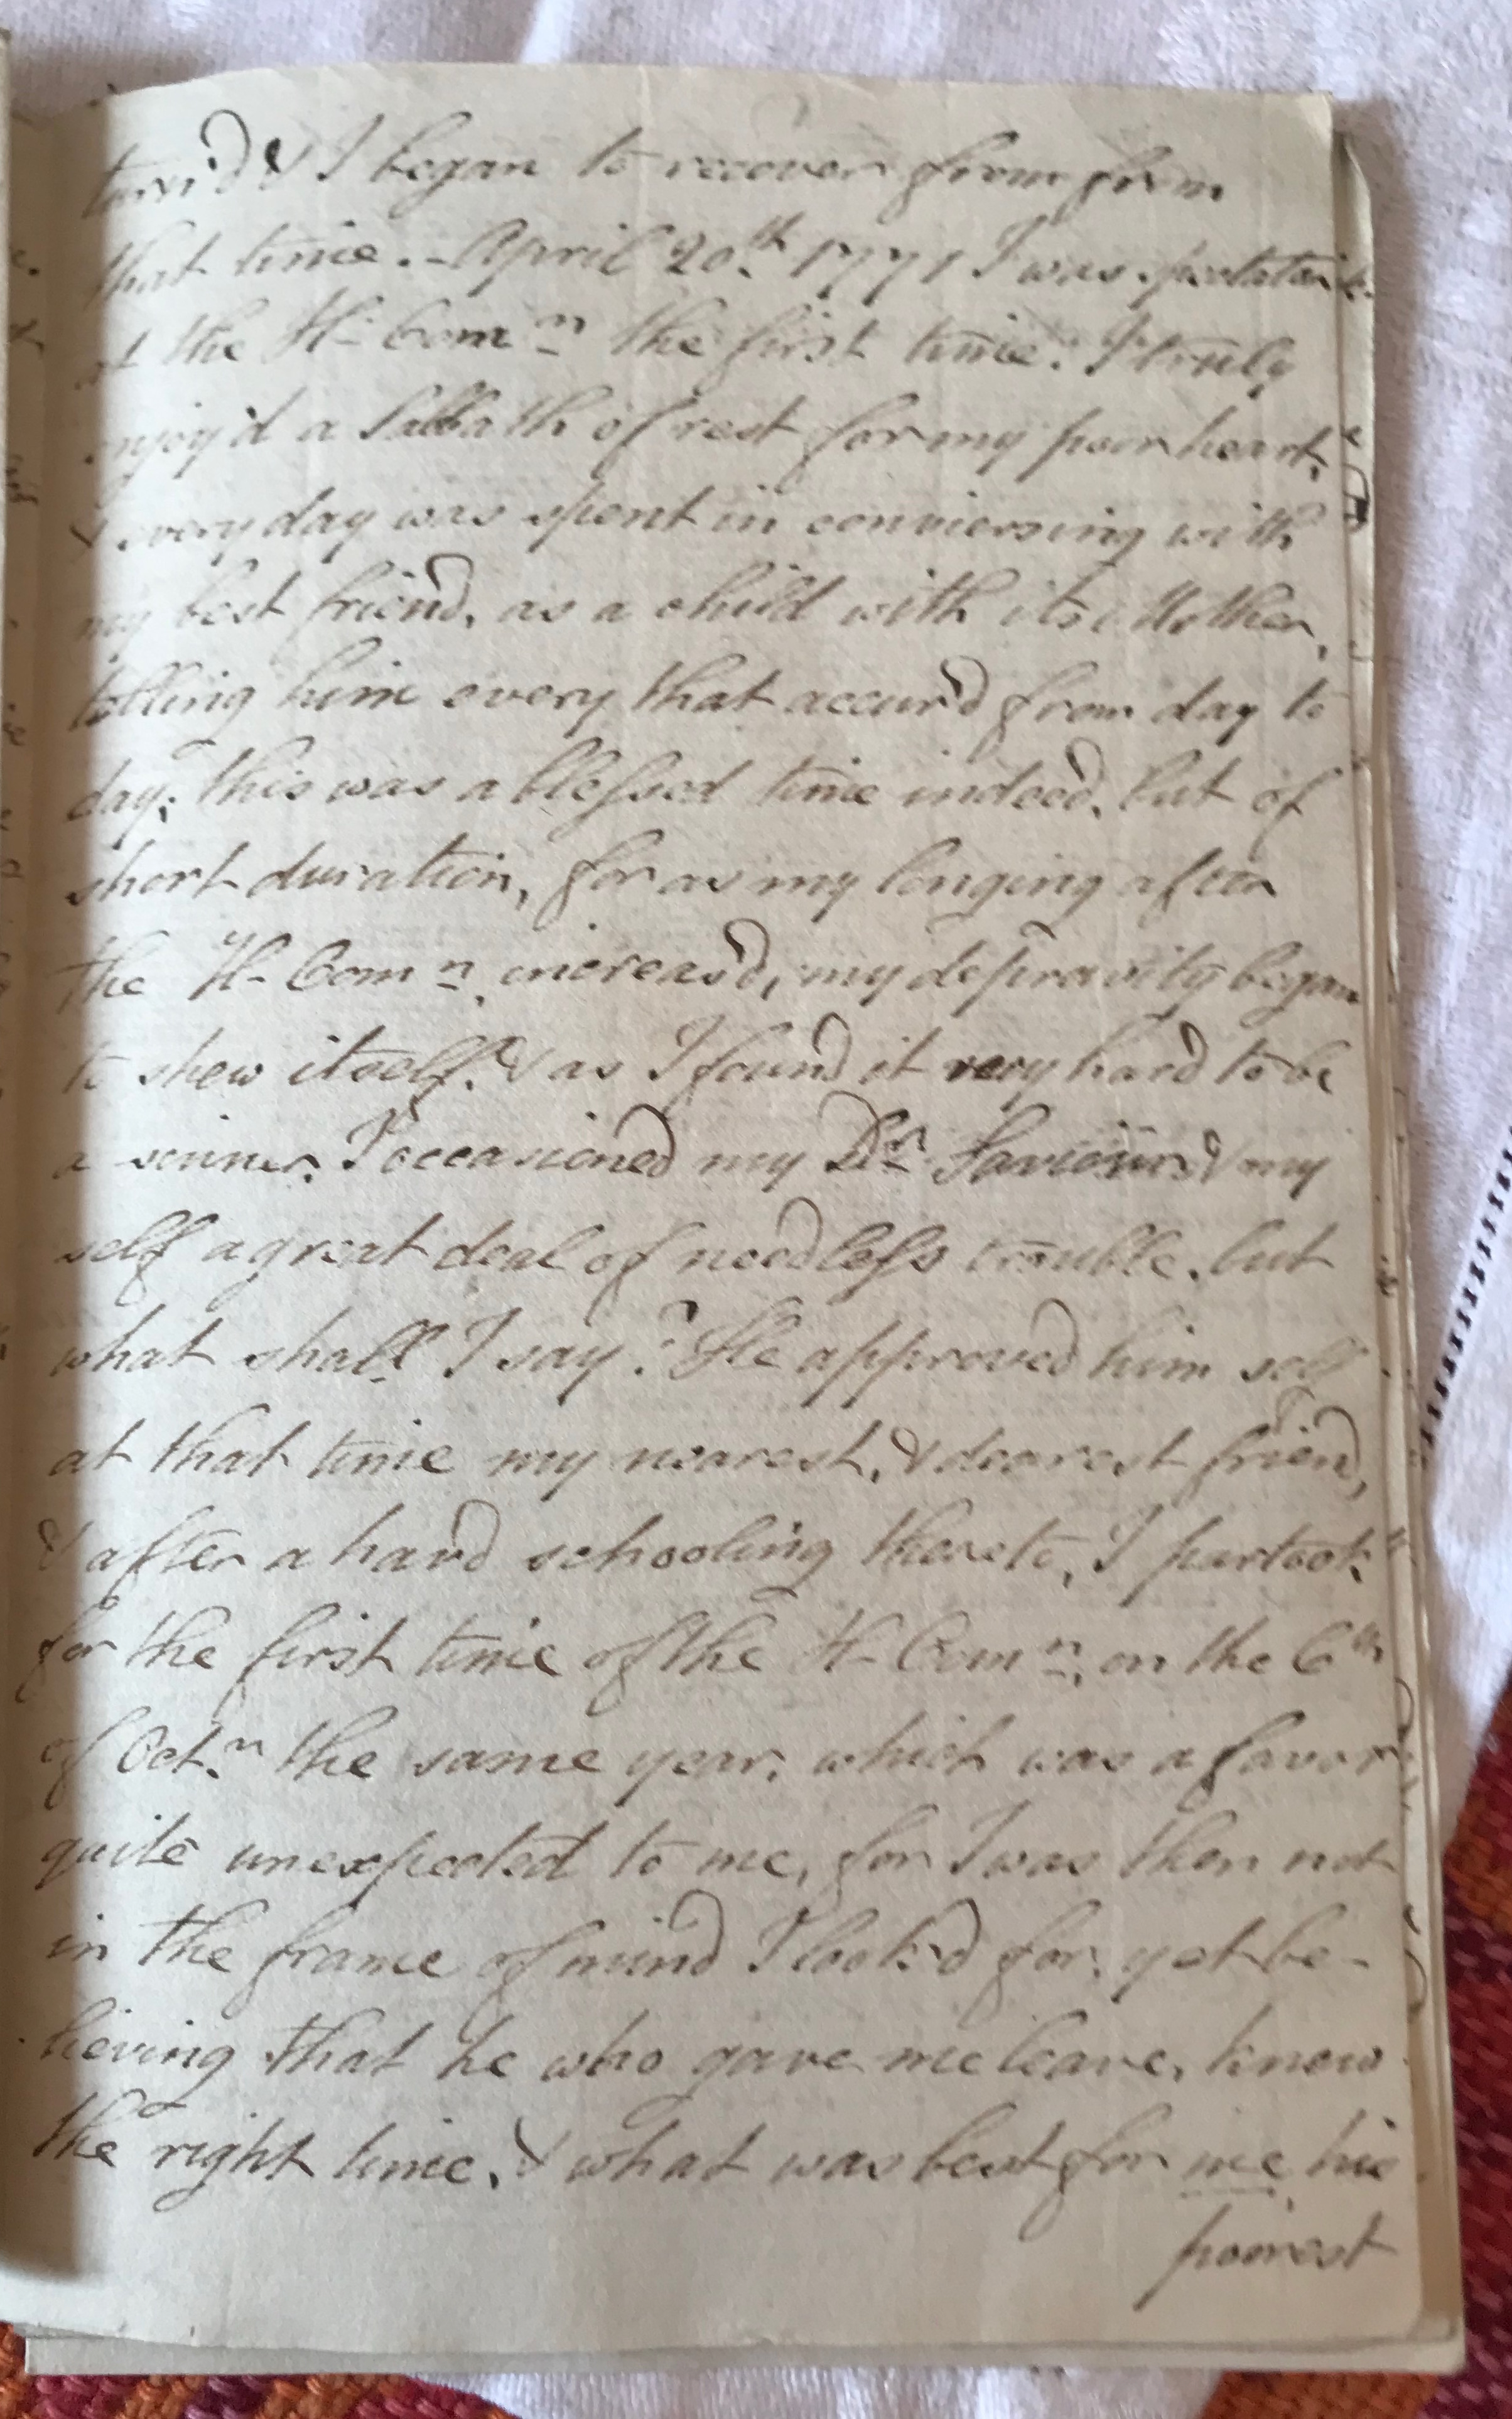 turn'd & I began to recover from from
that time. - April 20th 1771 I was spectator
at the H- Comn the first time. I truly
enjoy'd a Sabbath of rest for my poor heart,
& every day was spent in conviersing with
my best friend, as a child with its Mother,
telling him every that accur'd from day to
day; this was a blessed time indeed, but of
short duration, for as my longing after
the H- Comn increas'd, my depravity began
to shew itself. & as I found it very hard to be
a sinner, I occasioned my Dr Saviour & my
self a great deal of needless trouble, but
what shall I say? He approved him self
at that time my nearest, & dearest friend,
& after a hard schooling thereto, I partook
for the first time of the H- Comn, on the 6th
of Octr the same year, which was a favor
quite unexpected to me, for I was then not
in the frame of mind I look'd for, yet be-
lieving that he who gave me leave, knew
the right time, & what was best for me, his
poorest